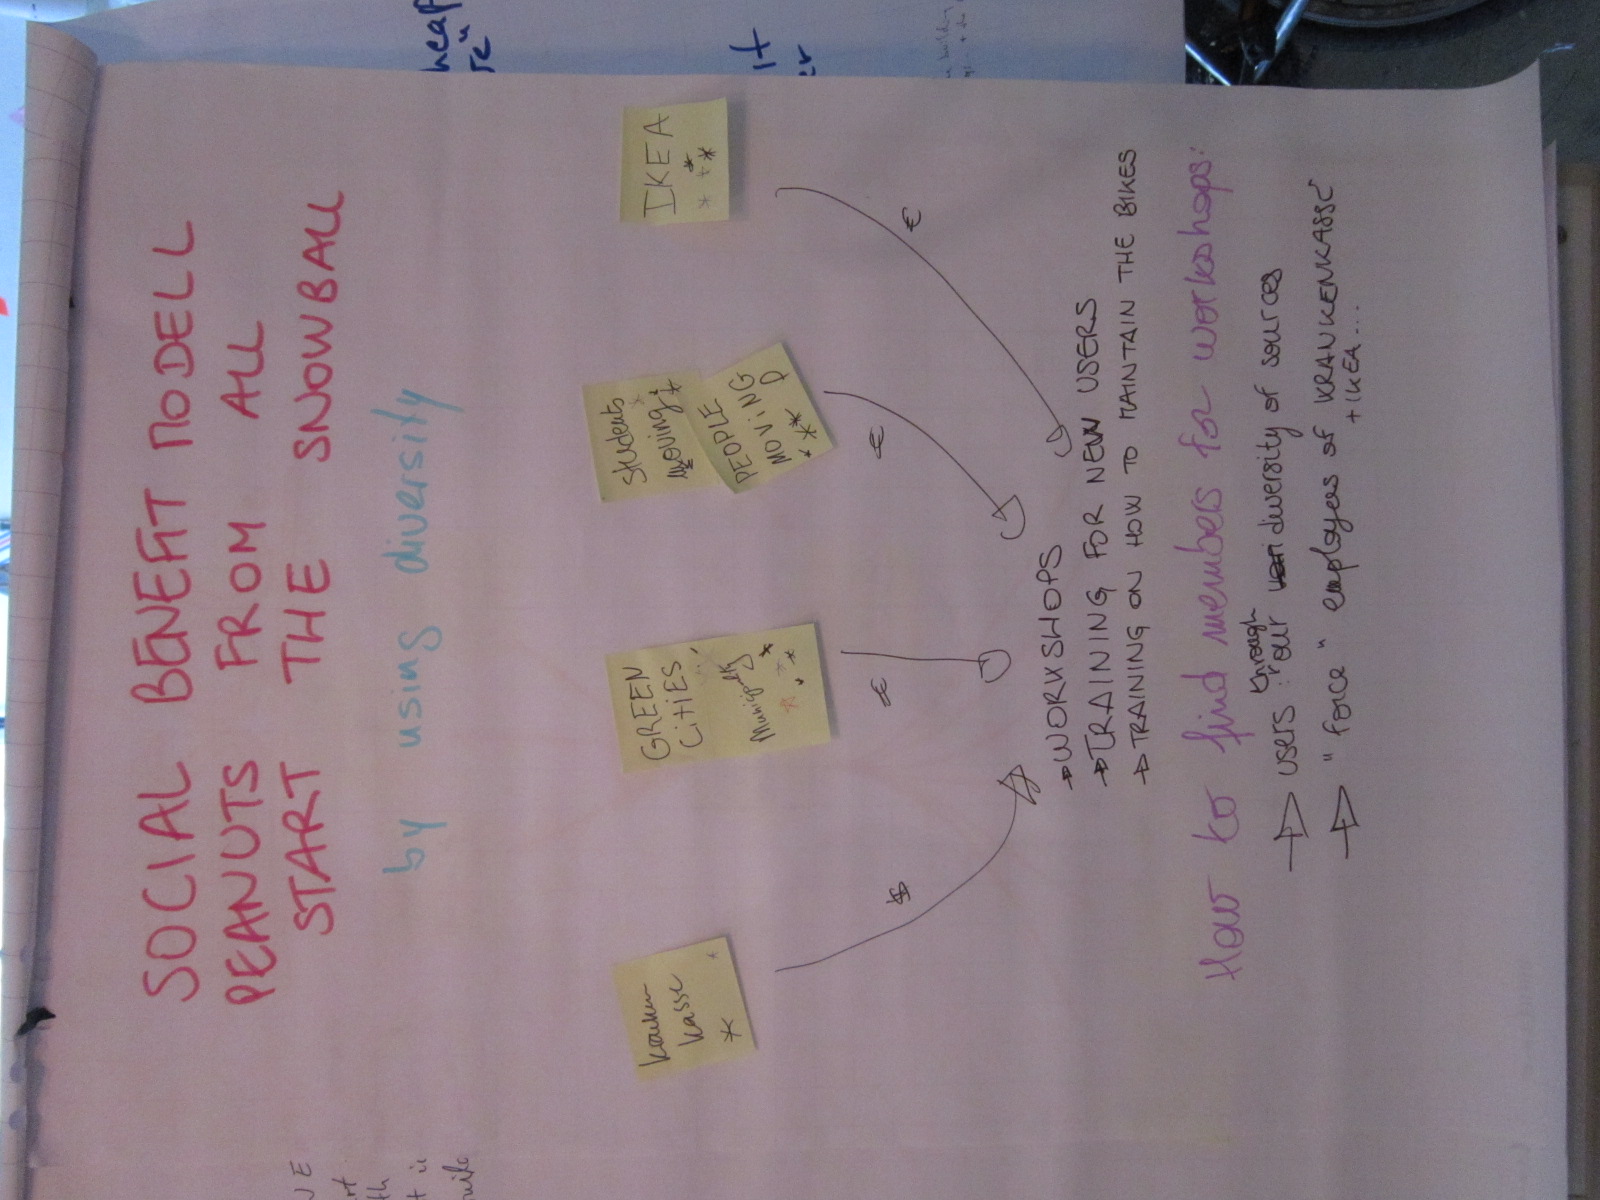 SOCIAL BENEFIT MODELL
PEANUTS FROM ALL
START THE SNOWBALL
by using diversity
kranken
kasse
GREEN
CITIES
Municipality
students
moving
PEOPLE
MOVING
IKEA
$
€
€
€
→WORKSHOPS
→TRAINING FOR NEW USERS
→TRAINING ON HOW TO MAINTAIN THE BIKES
How to find members for workshops:
→ users : through our diversity of sources
→ "force" employees of KRANKENKASSE
+ IKEA...